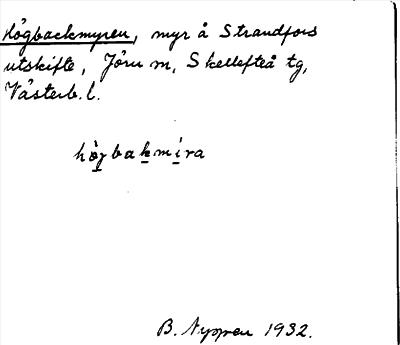 Högbackmyren, myr å Strandfors
utskifte, Jörn m, Skellefteå tg,
Västerb. l.
hö̀gbakmíra
B. Nyppen 1932.